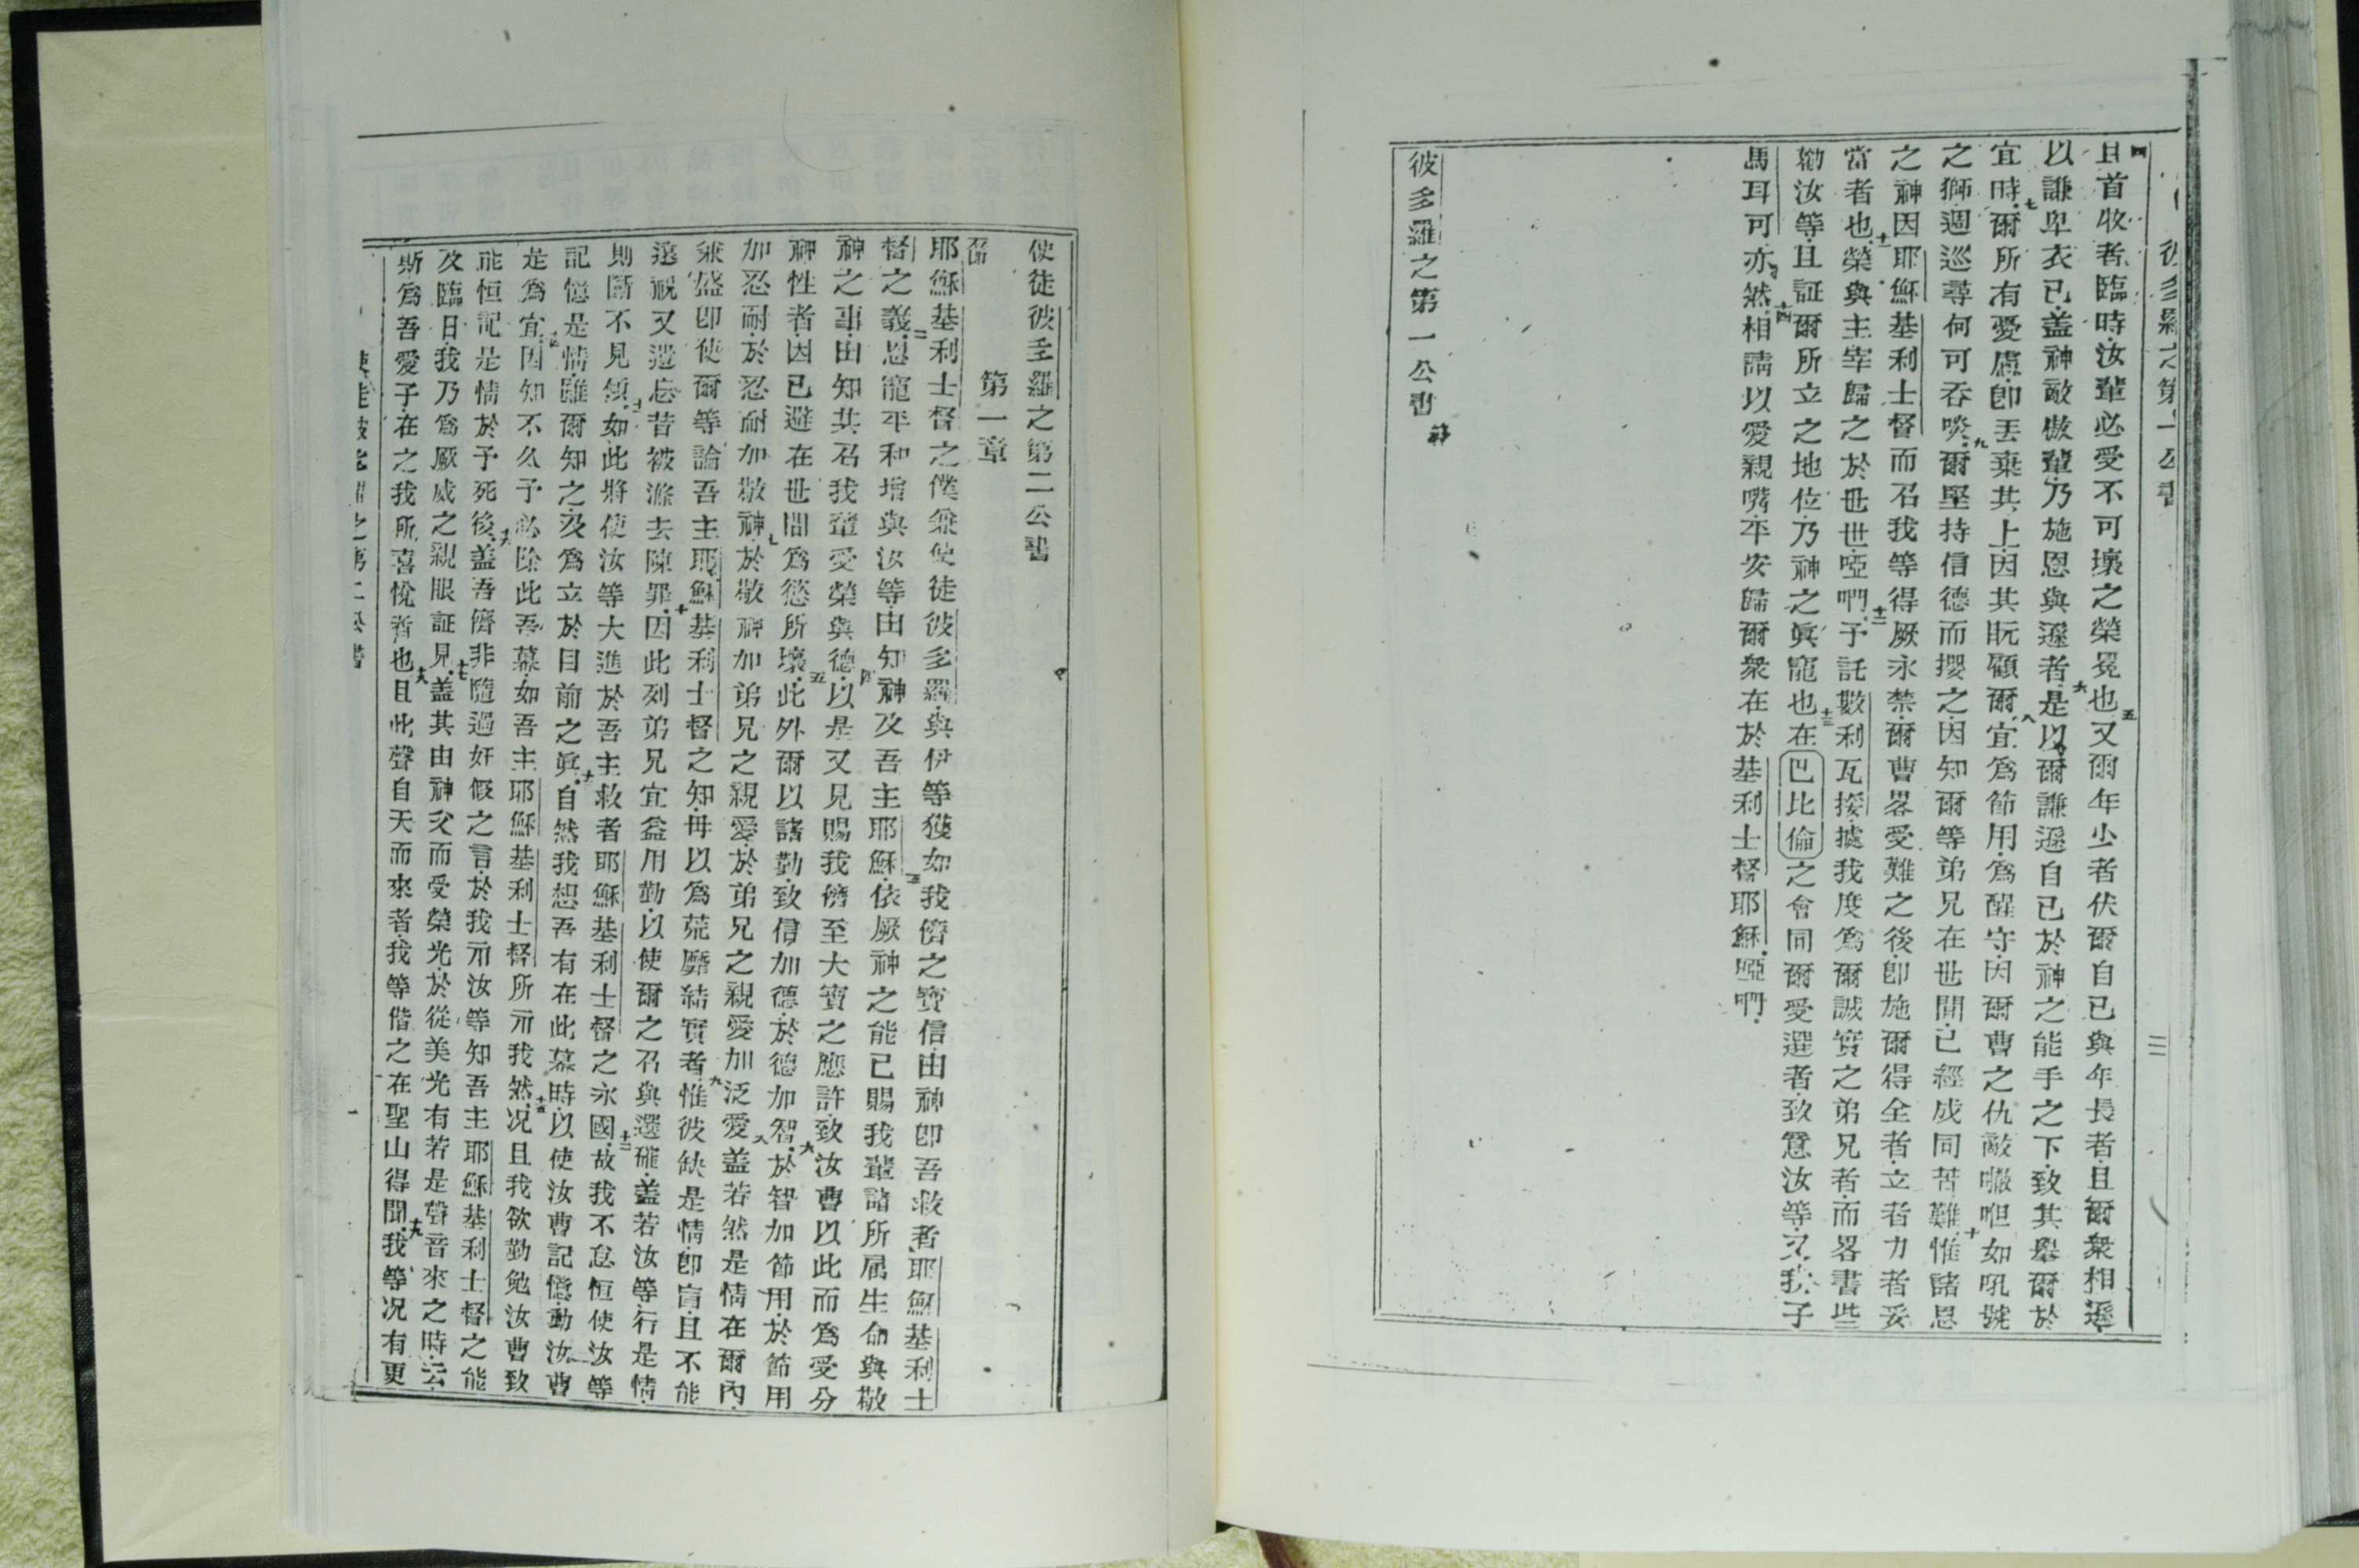 彼多羅之第一公書
四且首收者臨時汝輩必受不可壞之榮冕也五又爾年少者伏爾自已與年長者且爾衆相遜
以謙卑衣已盖神敵傲輩乃施恩與遜者六是以爾謙遜自已於神之能手之下致其舉爾於
宜時七爾所有憂慮卽丟棄其上因其眷顧爾八宜爲節用爲醒守因爾曹之仇敵如吼號
之獅週巡尋何可吞啖九爾堅持信德而攖之因知爾等弟兄在世間已經成同苦難十惟諸恩
之神因耶穌基利士督而召我等得厥永禁爾曹畧受難之後卽施爾得全者立者力者妥
當者也十一榮與主宰歸之於世世啞們十二予託數利瓦接據我度爲爾誠實之弟兄者而畧書些
勸汝等且証爾所立之地位乃神之眞寵也十三在巴比倫之會同爾受選者致意汝等又我子
馬耳可亦然十四相請以愛親嘴平安歸爾衆在於基利士督耶穌啞們
彼多羅之第一公書
使徒彼多羅之第二公書
第一章
耶穌基利士督之僕兼使徒彼多羅與伊等獲如我儕之寳信由神卽吾救者耶穌基利士
督之義二恩寵平和增與汝等由知神及吾主耶穌三依厥神之能已賜我輩諸所属生命與敬
神之事由知其召我輩受榮與德四以是又見賜我儕至大寳之應許致汝曹以此而爲受分
神性者因已避在世間爲慾所壞五此外爾以諸勤致信加德於德加智六於智加節用於節用
加忍耐於忍耐加敬神七於敬神加弟兄之親愛於弟兄之親愛加泛愛八盖若然是情在爾內
兼盛卽使爾等論吾主耶穌基利士督之知毋以爲荒廢結實者九惟彼缺是情卽盲且不能
遠視又遺忘昔被滌去陳罪十因此列弟兄宜益用勤以使爾之召與選確盖若汝等行是情
則斷不見傾十一如此將使汝等大進於吾主救者耶穌基利士督之永國十二故我不怠恒使汝等
記憶是情雖爾知之及爲立於目前之眞十三自然我想吾有在此幕時以使汝曹記憶動汝曹
是爲宜十四因知不久予必除此吾幕如吾主耶穌基利士督所示我然十五况且我欲勤勉汝曹致
能恒記是情於予死後十六盖吾儕非隨過奸假之言於我示汝等知吾主耶穌基利士督之能
及臨日我乃爲厥威之親眼証見十七盖其由神父而受榮光於從美光有若是聲音來之時云
斯爲吾愛子在之我所喜悅者也十八且此聲自天而來者我等偕之在聖山得聞十九我等况有更